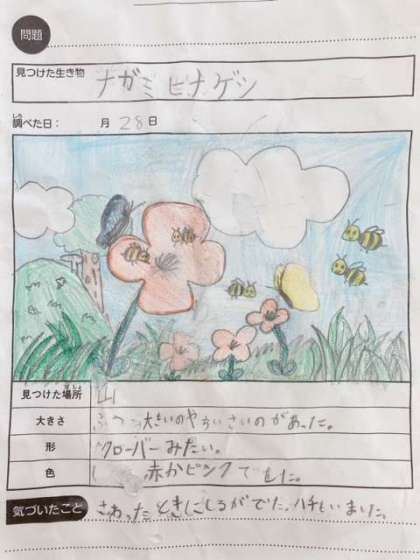 問題
見つけた生き物 ナガミヒナゲシ
調べた日： 月 28日
見つけた場所 山
大きさ ふつう 大きいのや ちいさいのがあった。
形 クローバーみたい。
色 赤かピンクでした。
気づいたこと さわったときにしるがでた。ハチもいました。